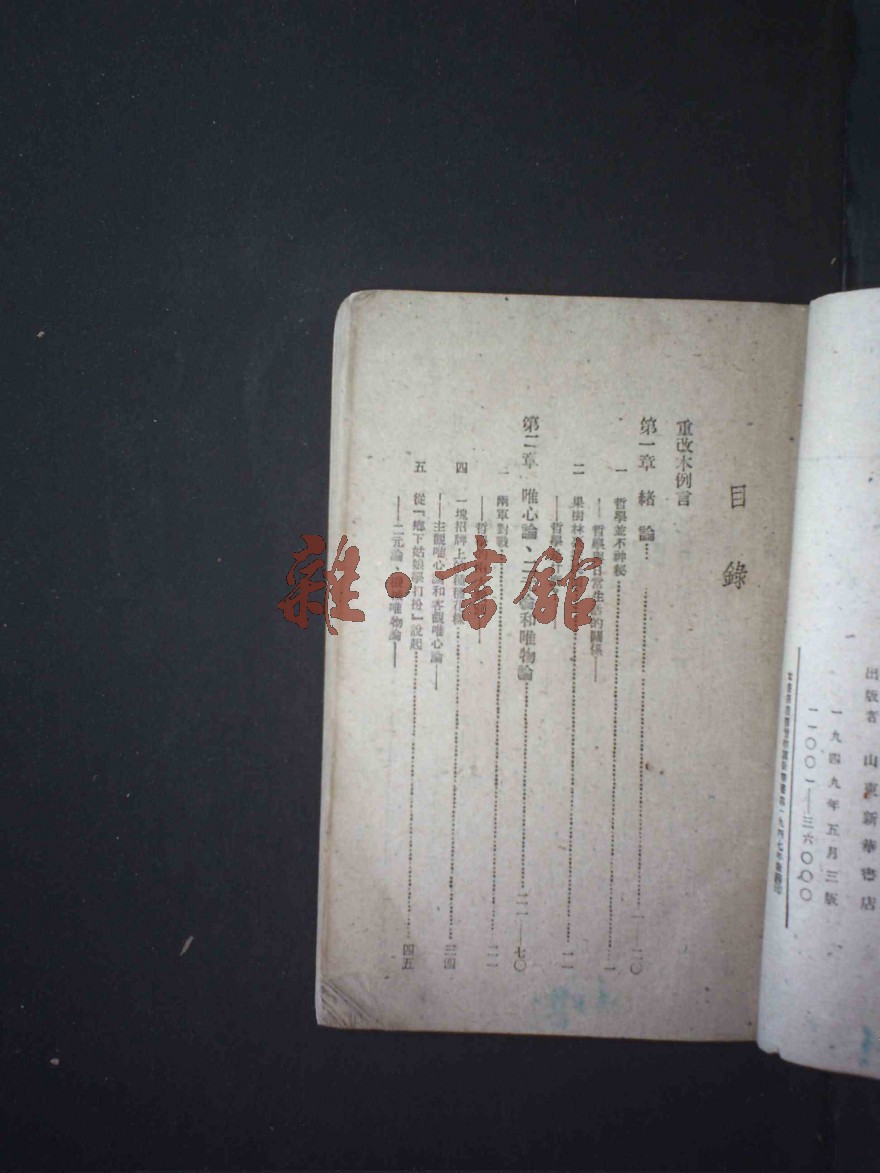 出版者 山東新華書店
一九四九年五月三版
一一〇〇一—三六〇〇〇
目錄
重改本例言
第一章 緒論……一—二〇
一 哲學並不神秘……一
——哲學與日常生活的關係——
二 果樹林……一一
——哲學
第二章 唯心論、二元論和唯物論……二一—七〇
兩軍對戰……二一
——哲
四 一塊招牌上……三四
——主觀唯心論和客觀唯心論——
五 從「鄉下姑娘學打扮」說起……四五
——二元論、唯物論——
雜·書館